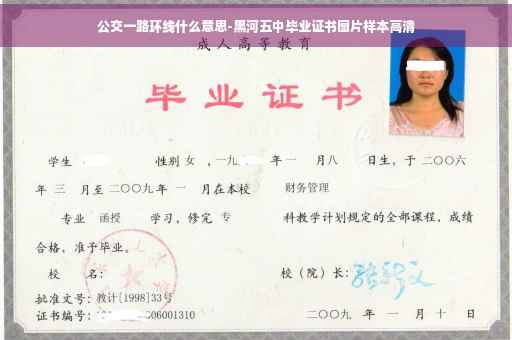 公交一路环线什么意思-黑河五中毕业证书图片样本高清
成人高等教育
毕业证书
学生 性别 女 ，一九 年 一 月八 日生，于 二〇〇六
年 三 月至 二〇〇九 年 一 月在本校 财务管理
专业 函授 学习，修完 专 科教学计划规定的全部课程，成绩
合格，准予毕业。
校 名： 校（院）长：
批准文号：教计[1998]33号
证书编号： 06001310 二〇〇九 年 一 月 十 日